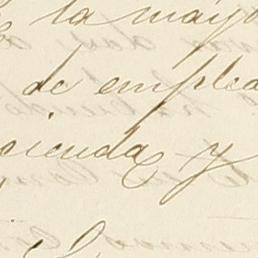 la mayo
de emplea
cienda y